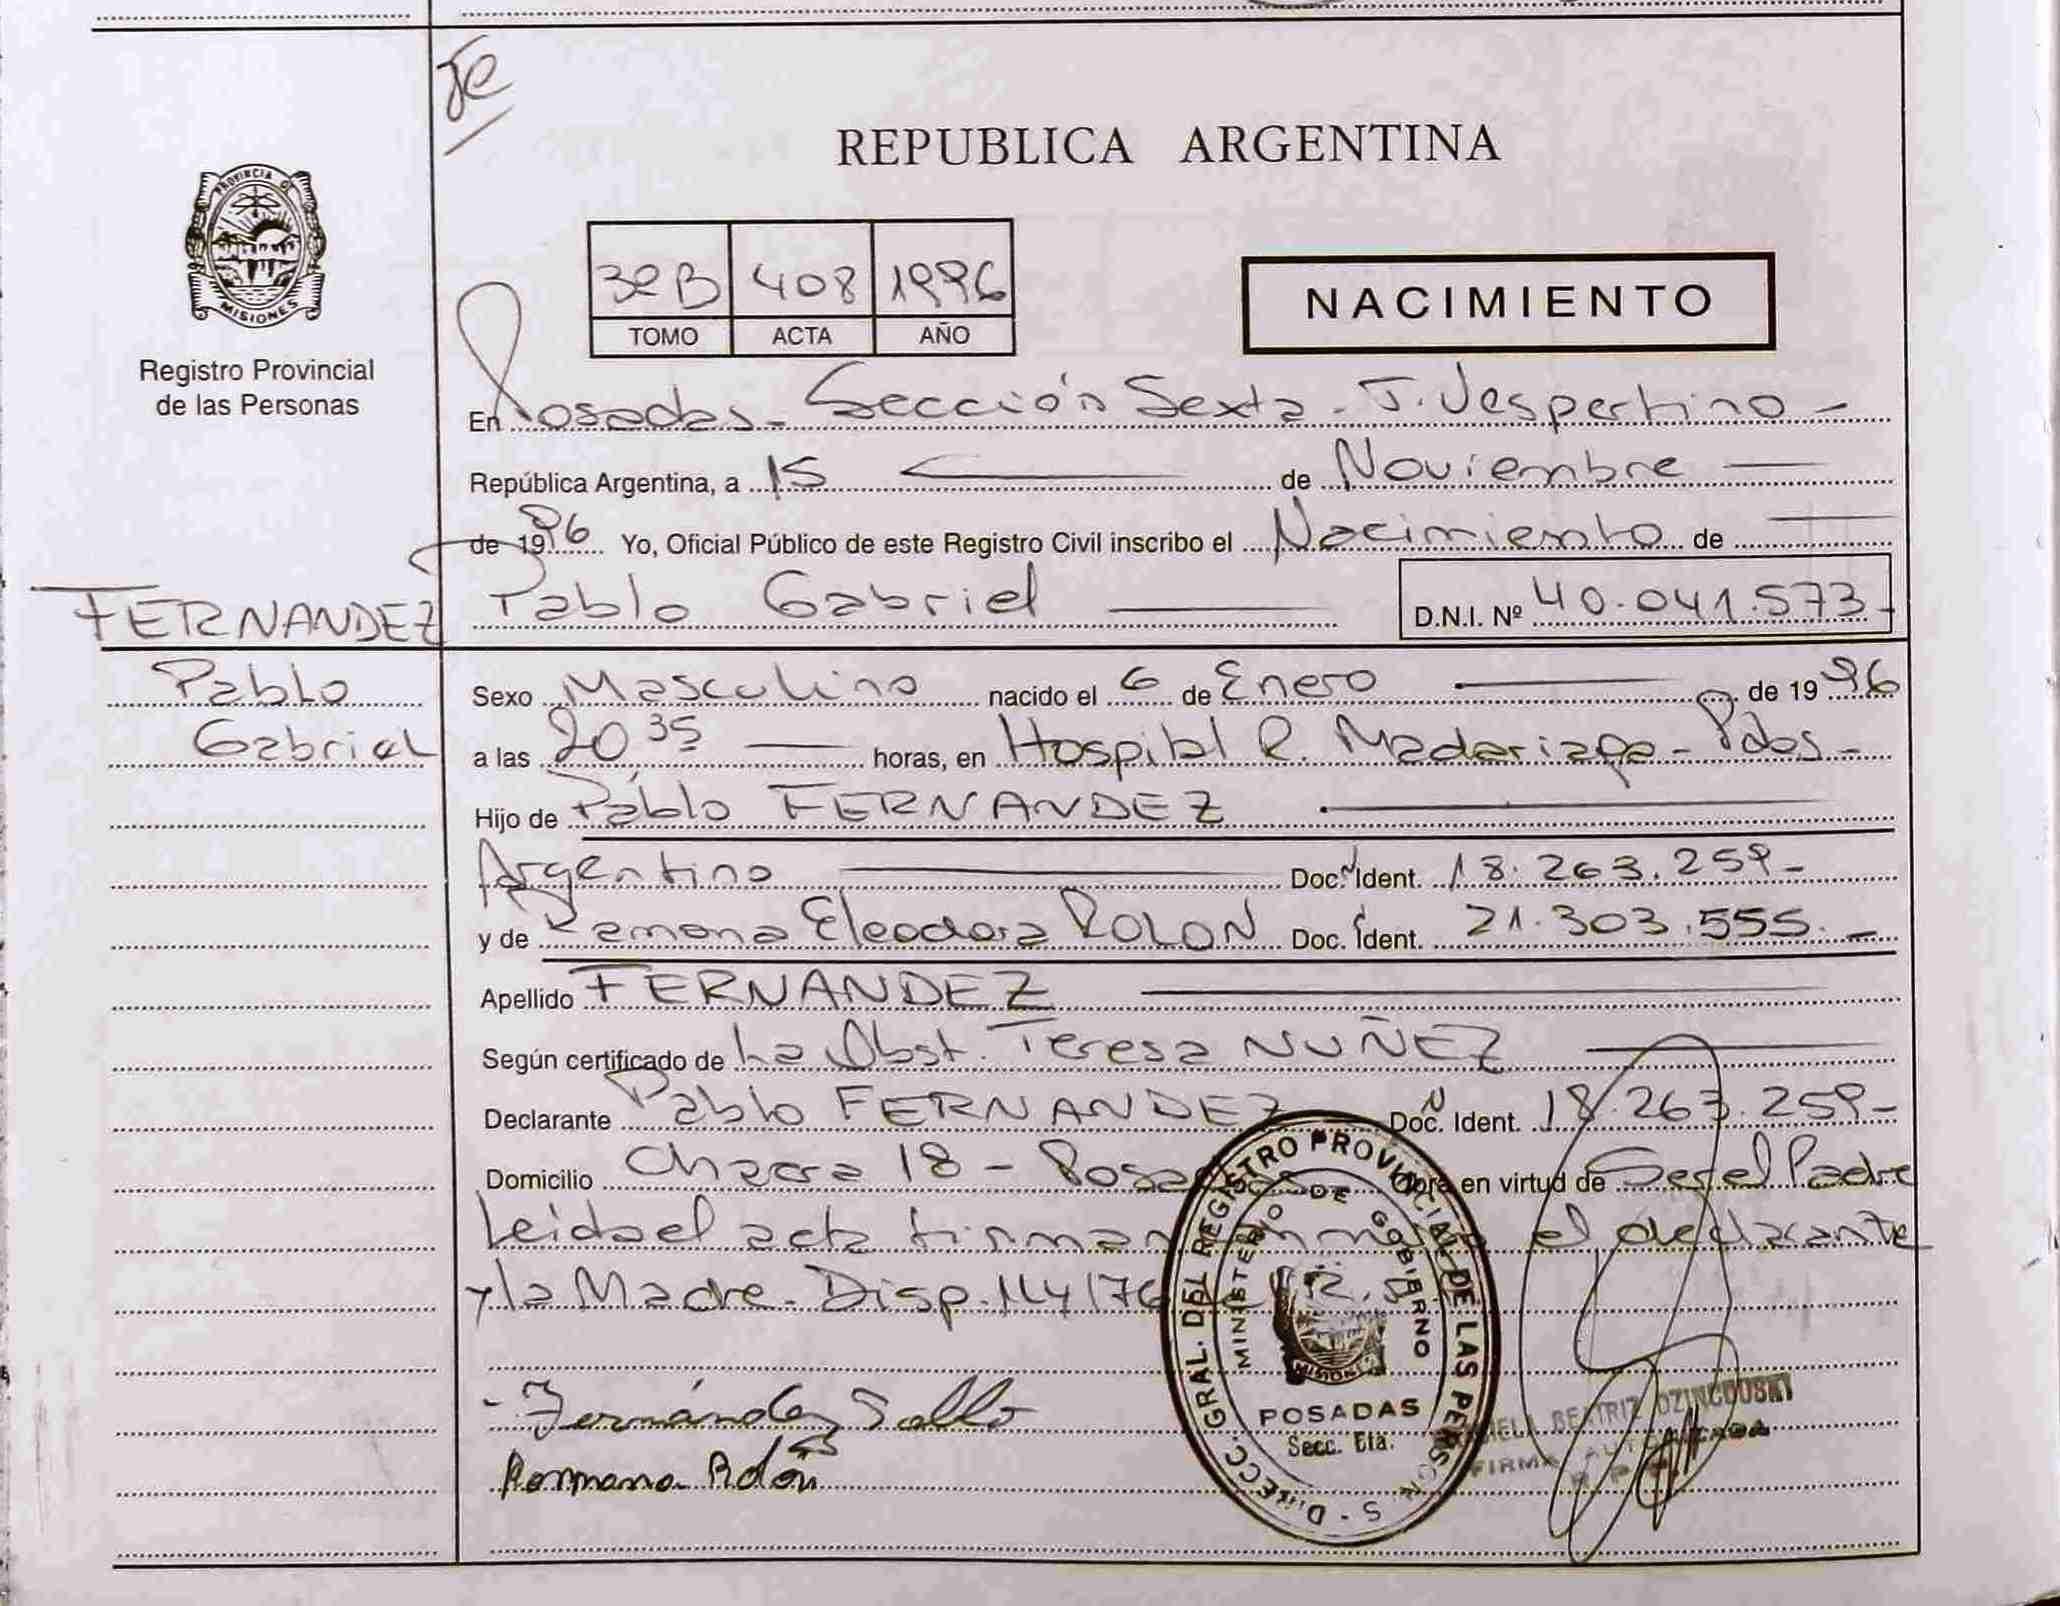 REPUBLICA ARGENTINA
PROVINCIA DE
MISIONES
Registro Provincial
de las Personas
1996
408
TOMO ACTA AÑO
NACIMIENTO
En Posadas - Sección Sexta - T. Vespertino -
República Argentina, a 15 de Noviembre
de 1996 Yo, Oficial Público de este Registro Civil inscribo el Nacimiento de
FERNANDEZ Pablo Gabriel D.N.I. Nº 40.041.573-
Pablo
Gabriel
Sexo Masculino nacido el 6 de Enero de 1996
a las 20 35 horas, en Hospital R. Madariaga - Pdas -
Hijo de Pablo FERNANDEZ
Argentino Doc. Ident. 18.263.259-
y de Ramona Eleodora ROLON Doc. Ident. 21.303.555.-
Apellido FERNANDEZ
Según certificado de La Obst. Teresa NUÑEZ
Declarante Pablo FERNANDEZ Doc. Ident. 18.263.259-
Domicilio Chacra 18 - Posadas Obra en virtud de Ser el Padre
Leida el acta firman el declarante
y la Madre. Disp. 114/76
Fernández Pablo
Ramona Rolón
DIRECC. GRAL. DEL REGISTRO PROVINCIAL DE LAS PERSONAS
MINISTERIO DE GOBIERNO
MISIONES
POSADAS
Secc. 6ta.
BEATRIZ
FIRMA AUTORIZADA